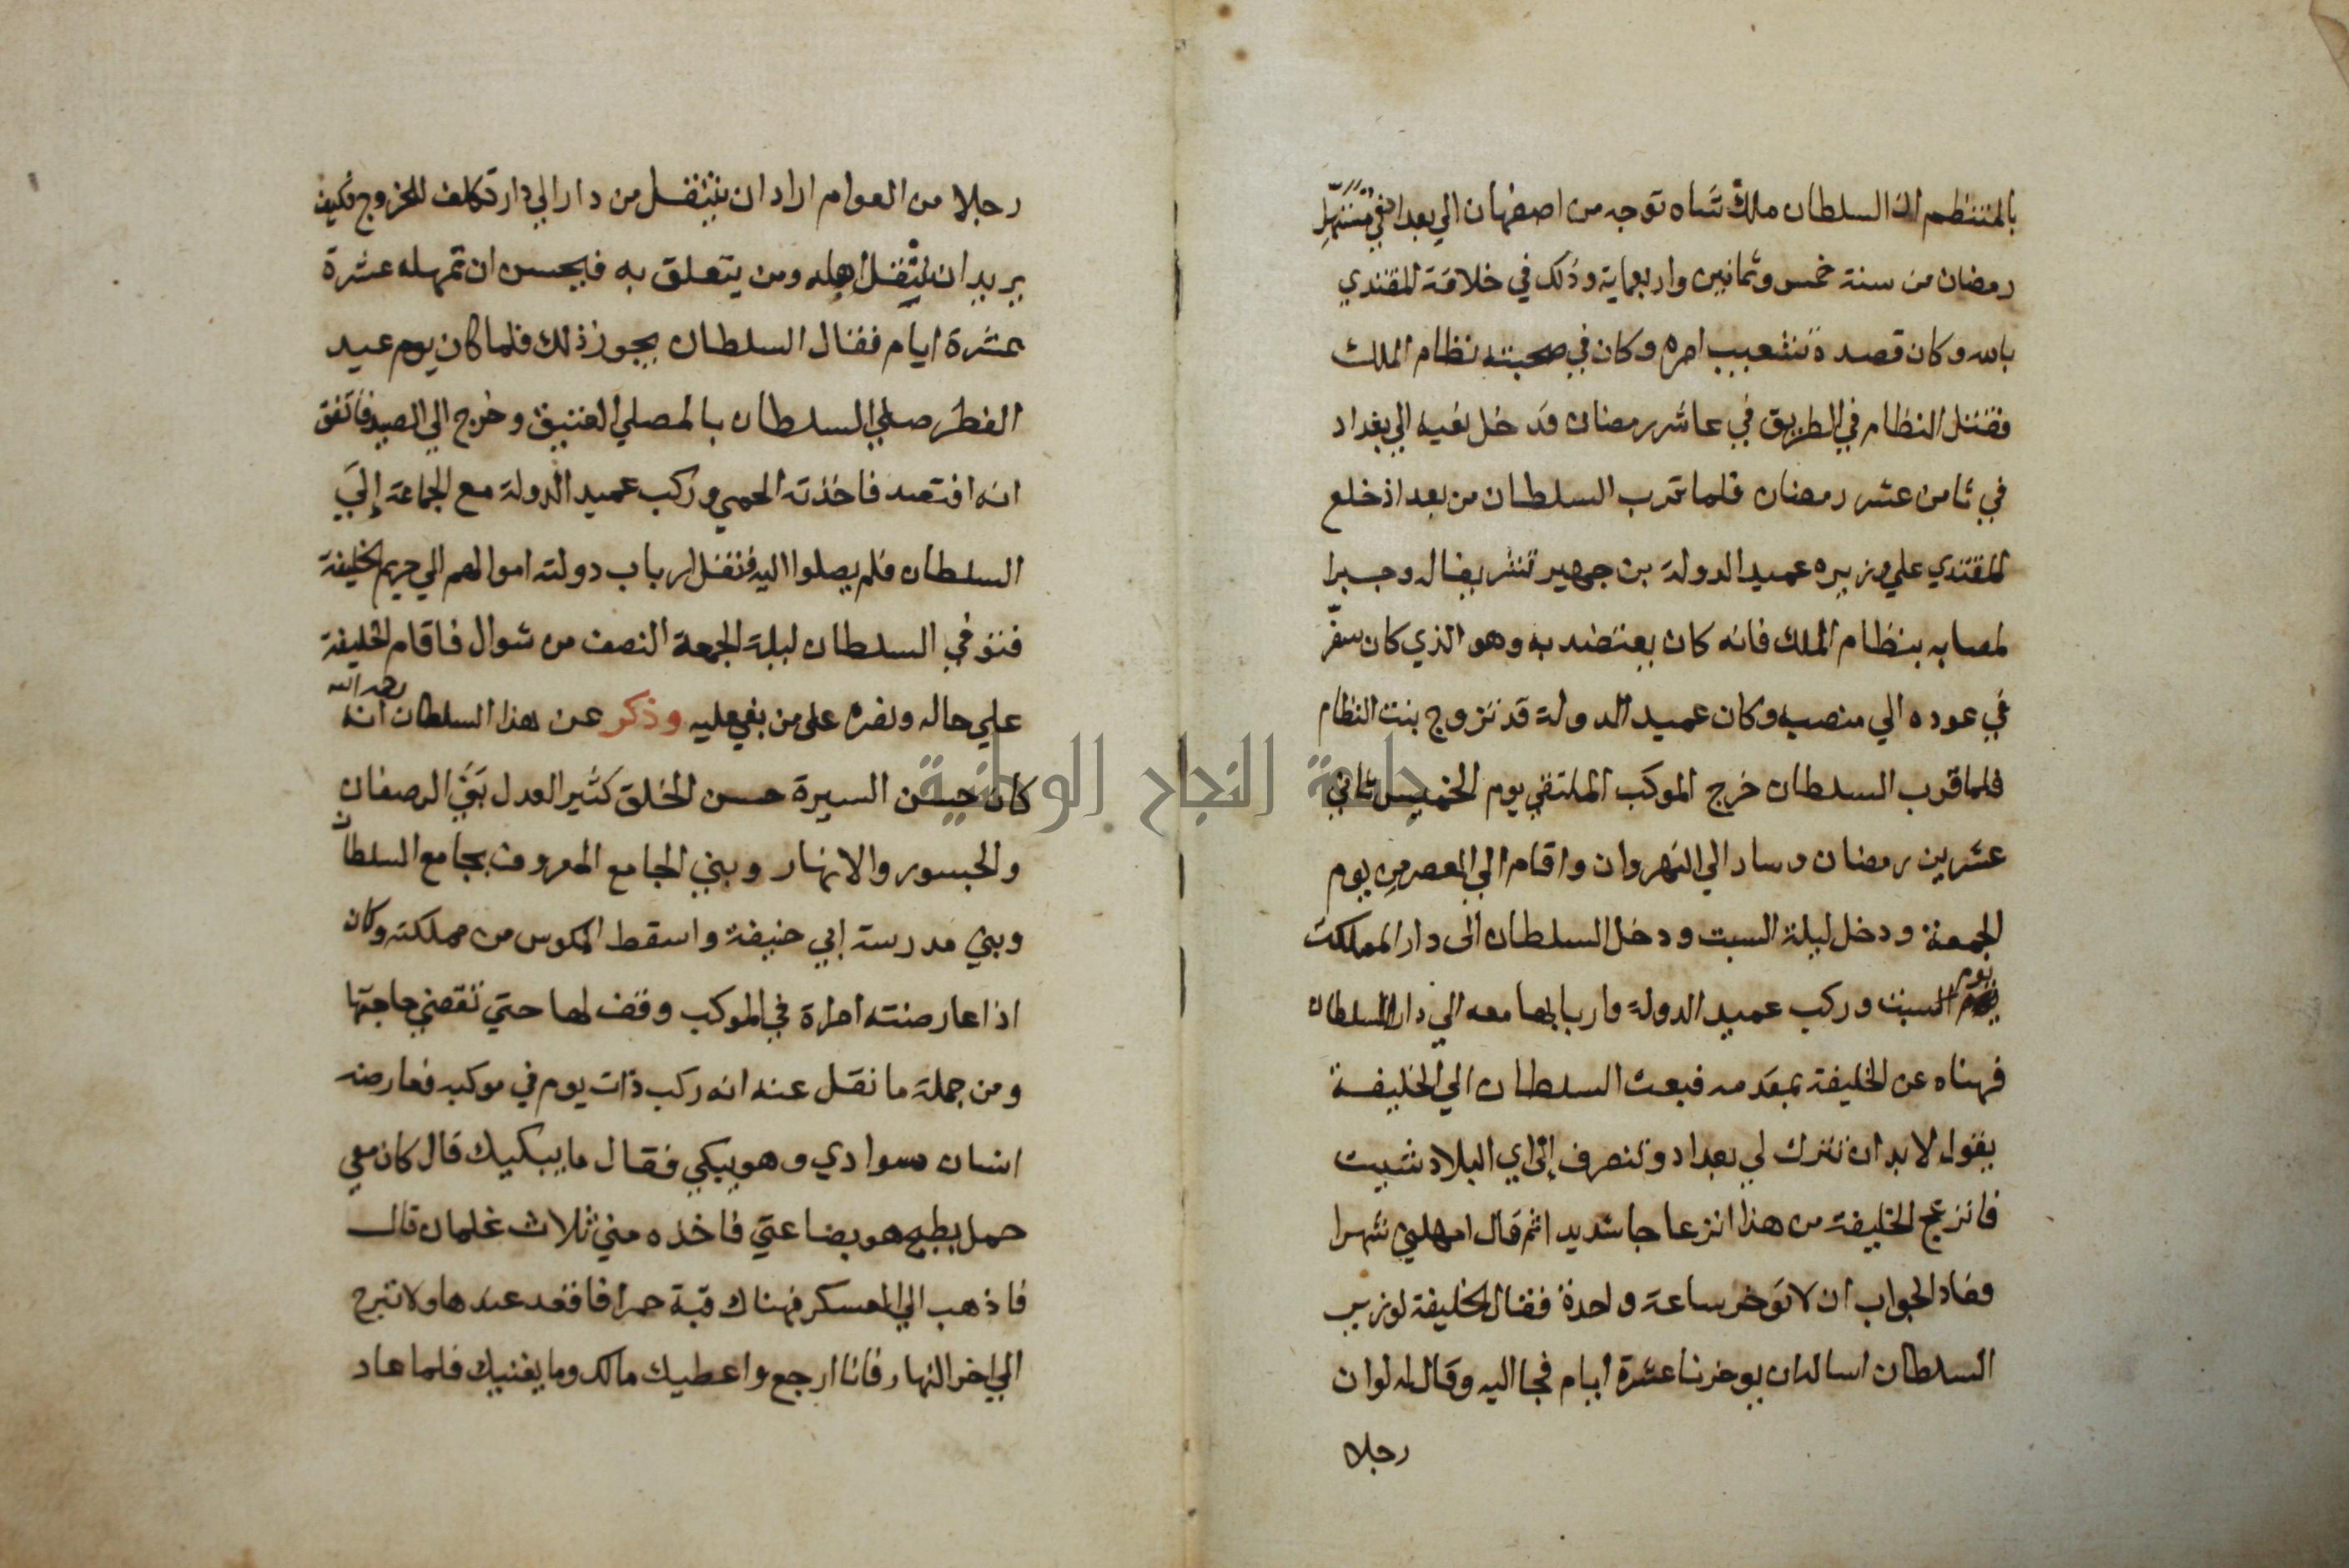 بالمنتظم ان السلطان ملك شاه توجه من اصفهان الي بغداد في مستهل
رمضان من سنة خمس وثمانين واربعماية وذلك في خلافة المقتدي
بالله وكان قصده تشعيب امره وكان في صحبته نظام الملك
فقتل النظام في الطريق في عاشر رمضان فدخل نعيه الي بغداد
في ثامن عشر رمضان فلما قرب السلطان من بغداد خلع
المقتدي علي وزيره عميد الدولة بن جهير تشريفا له وجبرا
لمصابه بنظام الملك فانه كان يعتضد به وهو الذي كان سفر
في عوده الي منصبه وكان عميد الدولة قد تزوج بنت النظام
فلما قرب السلطان خرج الموكب الملتقي يوم الخميس ثاني
عشرين رمضان وسار الي النهروان واقام الي العصر من يوم
الجمعة ودخل ليلة السبت ودخل السلطان الى دار المملكت
يوم السبت وركب عميد الدولة وارباىها معه الي دار السلطان
فهناه عن الخليفة بمقدمه فبعث السلطان الي الخليفة
يقول لابد ان تترك لي بغداد وتنصرف إلى اي البلاد شيت
فانزعج الخليفة من هذا انزعاجا شديدا ثم قال امهلني شهرا
فعاد الجواب ان لا تؤخر ساعة واحدة فقال الخليفة لوزير
السلطان اساله ان يوخرنا عشرة ايام فجا اليه وقال له لو ان
رجلا
رجلا من العوام اراد ان ينتقل من دار الي دار تكلف للخروج فكيف
يريد ان ينقل اهله ومن يتعلق به فيحسن ان تمهله عشرة
عشرة ايام فقال السلطان يجوز ذلك فلما كان يوم عيد
الفطر صلي السلطان بالمصلي العتيق وخرج الي الصيد فاتفق
انه افتصد فاخذته الحمي وركب عميد الدولة مع الجماعة إلي
السلطان فلم يصلوا اليه فنقل ارباب دولته اموالهم الي حريم الخليفة
فتوفي السلطان ليلة الجمعة النصف من شوال فاقام الخليفة
علي حاله ونصره على من بغي عليه وذكر عن هذا السلطان رحمه الله انه
كان حسن السيرة حسن الخلق كثير العدل بني الرصفان
والجسور والانهار وبني الجامع المعروف بجامع السلطان
وبني مدرسة ابي حنيفة واسقط المكوس من مملكته وكان
اذا عارضته امراة في الموكب وقف لها حتي تقضي حاجتها
ومن جملة ما نقل عنه انه ركب ذات يوم في موكبه فعارضه
انسان سوادي وهو يبكي فقال ما يبكيك قال كان معي
حمل بطيخ هو بضاعتي فاخذه مني ثلاث غلمان قال
فاذهب الي المعسكر فهناك قبة حمرا فاقعد عندها ولا تبرح
الي اخر النهار فانا ارجع واعطيك مالك وما يغنيك فلما عاد
جامعة النجاح الوطنية